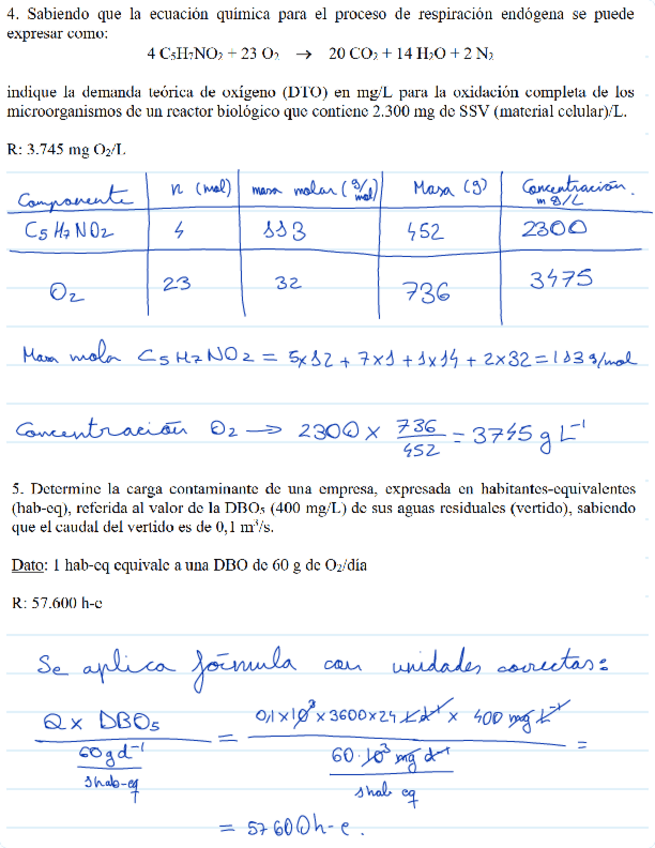 4. Sabiendo que la ecuación química para el proceso de respiración endógena se puede
expresar como:
4 C₅H₇NO₂ + 23 O₂ → 20 CO₂ + 14 H₂O + 2 N₂
indique la demanda teórica de oxígeno (DTO) en mg/L para la oxidación completa de los
microorganismos de un reactor biológico que contiene 2.300 mg de SSV (material celular)/L.
R: 3.745 mg O₂/L
Componente n (mol) masa molar (g/mol) Masa (g) Concentración mg/L
C5H7NO2 4 113 452 2300
O2 23 32 736 3475
Masa molar C5H7NO2 = 5x12 + 7x1 + 1x14 + 2x32 = 113 g/mol
Concentración O2 → 2300 x 736/452 = 3745 g L⁻¹
5. Determine la carga contaminante de una empresa, expresada en habitantes-equivalentes
(hab-eq), referida al valor de la DBO₅ (400 mg/L) de sus aguas residuales (vertido), sabiendo
que el caudal del vertido es de 0,1 m³/s.
Dato: 1 hab-eq equivale a una DBO de 60 g de O₂/día
R: 57.600 h-e
Se aplica fórmula con unidades correctas:
Q x DBO5 / (60 g d⁻¹ / 1hab-eq) = 0,1 x 10³ x 3600 x 24 L d⁻¹ x 400 mg L⁻¹ / (60·10³ mg d⁻¹ / 1hab eq) =
= 57600 h-e.